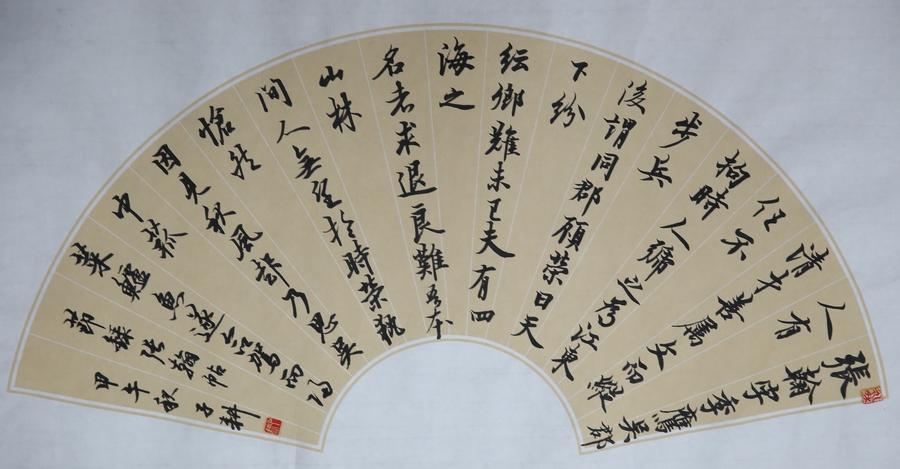 張翰字季鷹吳郡
人有
清才善屬文而縱
任不
拘時人號之為江東
步兵
後謂同郡顧榮曰天
下紛
紜禍難未已夫有四
海之
名者求退良難吾本
山林
間人無望於時榮執
愴然
因見秋風起乃思吳
中菰
菜鱸魚遂命駕而歸
節錄張翰帖
甲午秋子耕